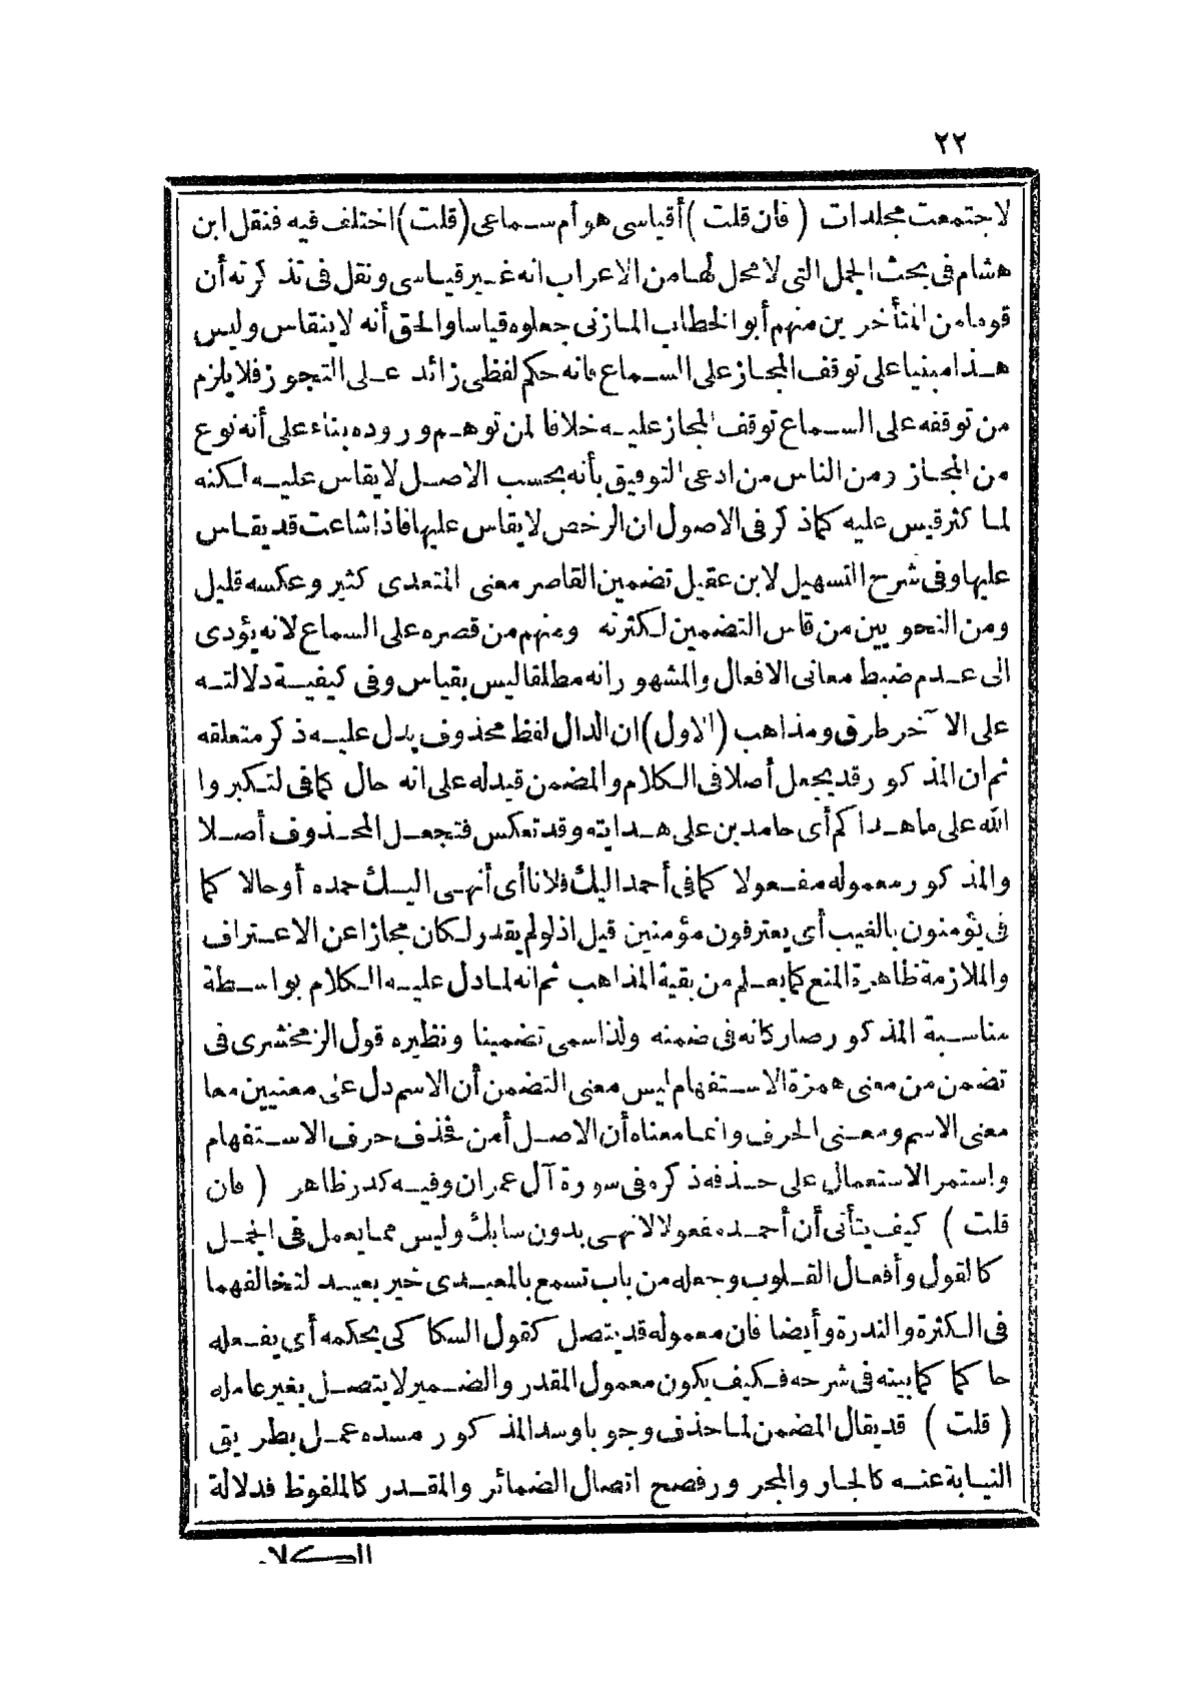 ٢٢
لاجتمعت مجلدات ( فان قلت ) أقياسى هو أم سماعى (قلت) اختلف فيه فنقل ابن
هشام فى بحث الجمل التى لا محل لها من الاعراب انه غير قياسى ونقل فى تذكرته أن
قوما من المتأخرين منهم أبو الخطاب المازنى جعلوه قياسا والحق أنه لا ينقاس وليس
هذا مبنيا على توقف المجاز على السماع فانه حكم لفظى زائد على التجوز فلا يلزم
من توقفه على السماع توقف المجاز عليه خلافا لمن توهم وروده بناء على أنه نوع
من المجاز ومن الناس من ادعى التوفيق بأنه بحسب الاصل لا يقاس عليه لكنه
لما كثر قيس عليه كما ذكر فى الاصول ان الرخص لا يقاس عليها فاذا شاعت قد يقاس
عليها وفى شرح التسهيل لابن عقيل تضمين القاصر معنى المتعدى كثير وعكسه قليل
ومن النحويين من قاس التضمين لكثرته ومنهم من قصره على السماع لانه يؤدى
الى عدم ضبط معانى الافعال والمشهور انه مطلقا ليس بقياس وفى كيفية دلالته
على الآخر طرق ومذاهب (الاول) ان الدال لفظ محذوف يدل عليه ذكر متعلقه
ثم ان المذكور قد يجعل أصلا فى الكلام والمضمن قيد له على انه حال كما فى لتكبروا
الله على ما هداكم أى حامدين على هدايته وقد تعكس فتجعل المحذوف أصلا
والمذكور معموله مفعولا كما فى أحمد اليك فلانا أى أنهى اليك حمده أو حالا كما
فى يؤمنون بالغيب أى يعترفون مؤمنين قيل اذ لو لم يقدر لكان مجازا عن الاعتراف
والملازمة ظاهرة المنع كما يعلم من بقية المذاهب ثم انه لما دل عليه الكلام بواسطة
مناسبة المذكور صار كانه فى ضمنه ولذا سمى تضمينا ونظيره قول الزمخشرى فى
تضمن من معنى همزة الاستفهام ليس معنى التضمن أن الاسم دل على معنيين معا
معنى الاسم ومعنى الحرف وانما معناه أن الاصل أمن فحذف حرف الاستفهام
واستمر الاستعمال على حذفه ذكره فى سورة آل عمران وفيه كدر ظاهر ( فان
قلت ) كيف يتأتى أن أحمد مفعولا لانهى بدون سابك وليس مما يعمل فى الجمل
كالقول وأفعال القلوب وجعله من باب تسمع بالمعيدى خير بعيد لتخالفهما
فى الكثرة والندرة وأيضا فان معموله قد يتصل كقول السكاكى يحكمه أى يفعله
حاكما كما بينته فى شرحه فكيف يكون معمول المقدر والضمير لا يتصل بغير عامله
( قلت ) قد يقال المضمن لما حذف وجوبا وسد المذكور مسده عمل بطريق
النيابة عنه كالجار والمجرور فصح اتصال الضمائر والمقدر كالملفوظ فدلالة
الكلام